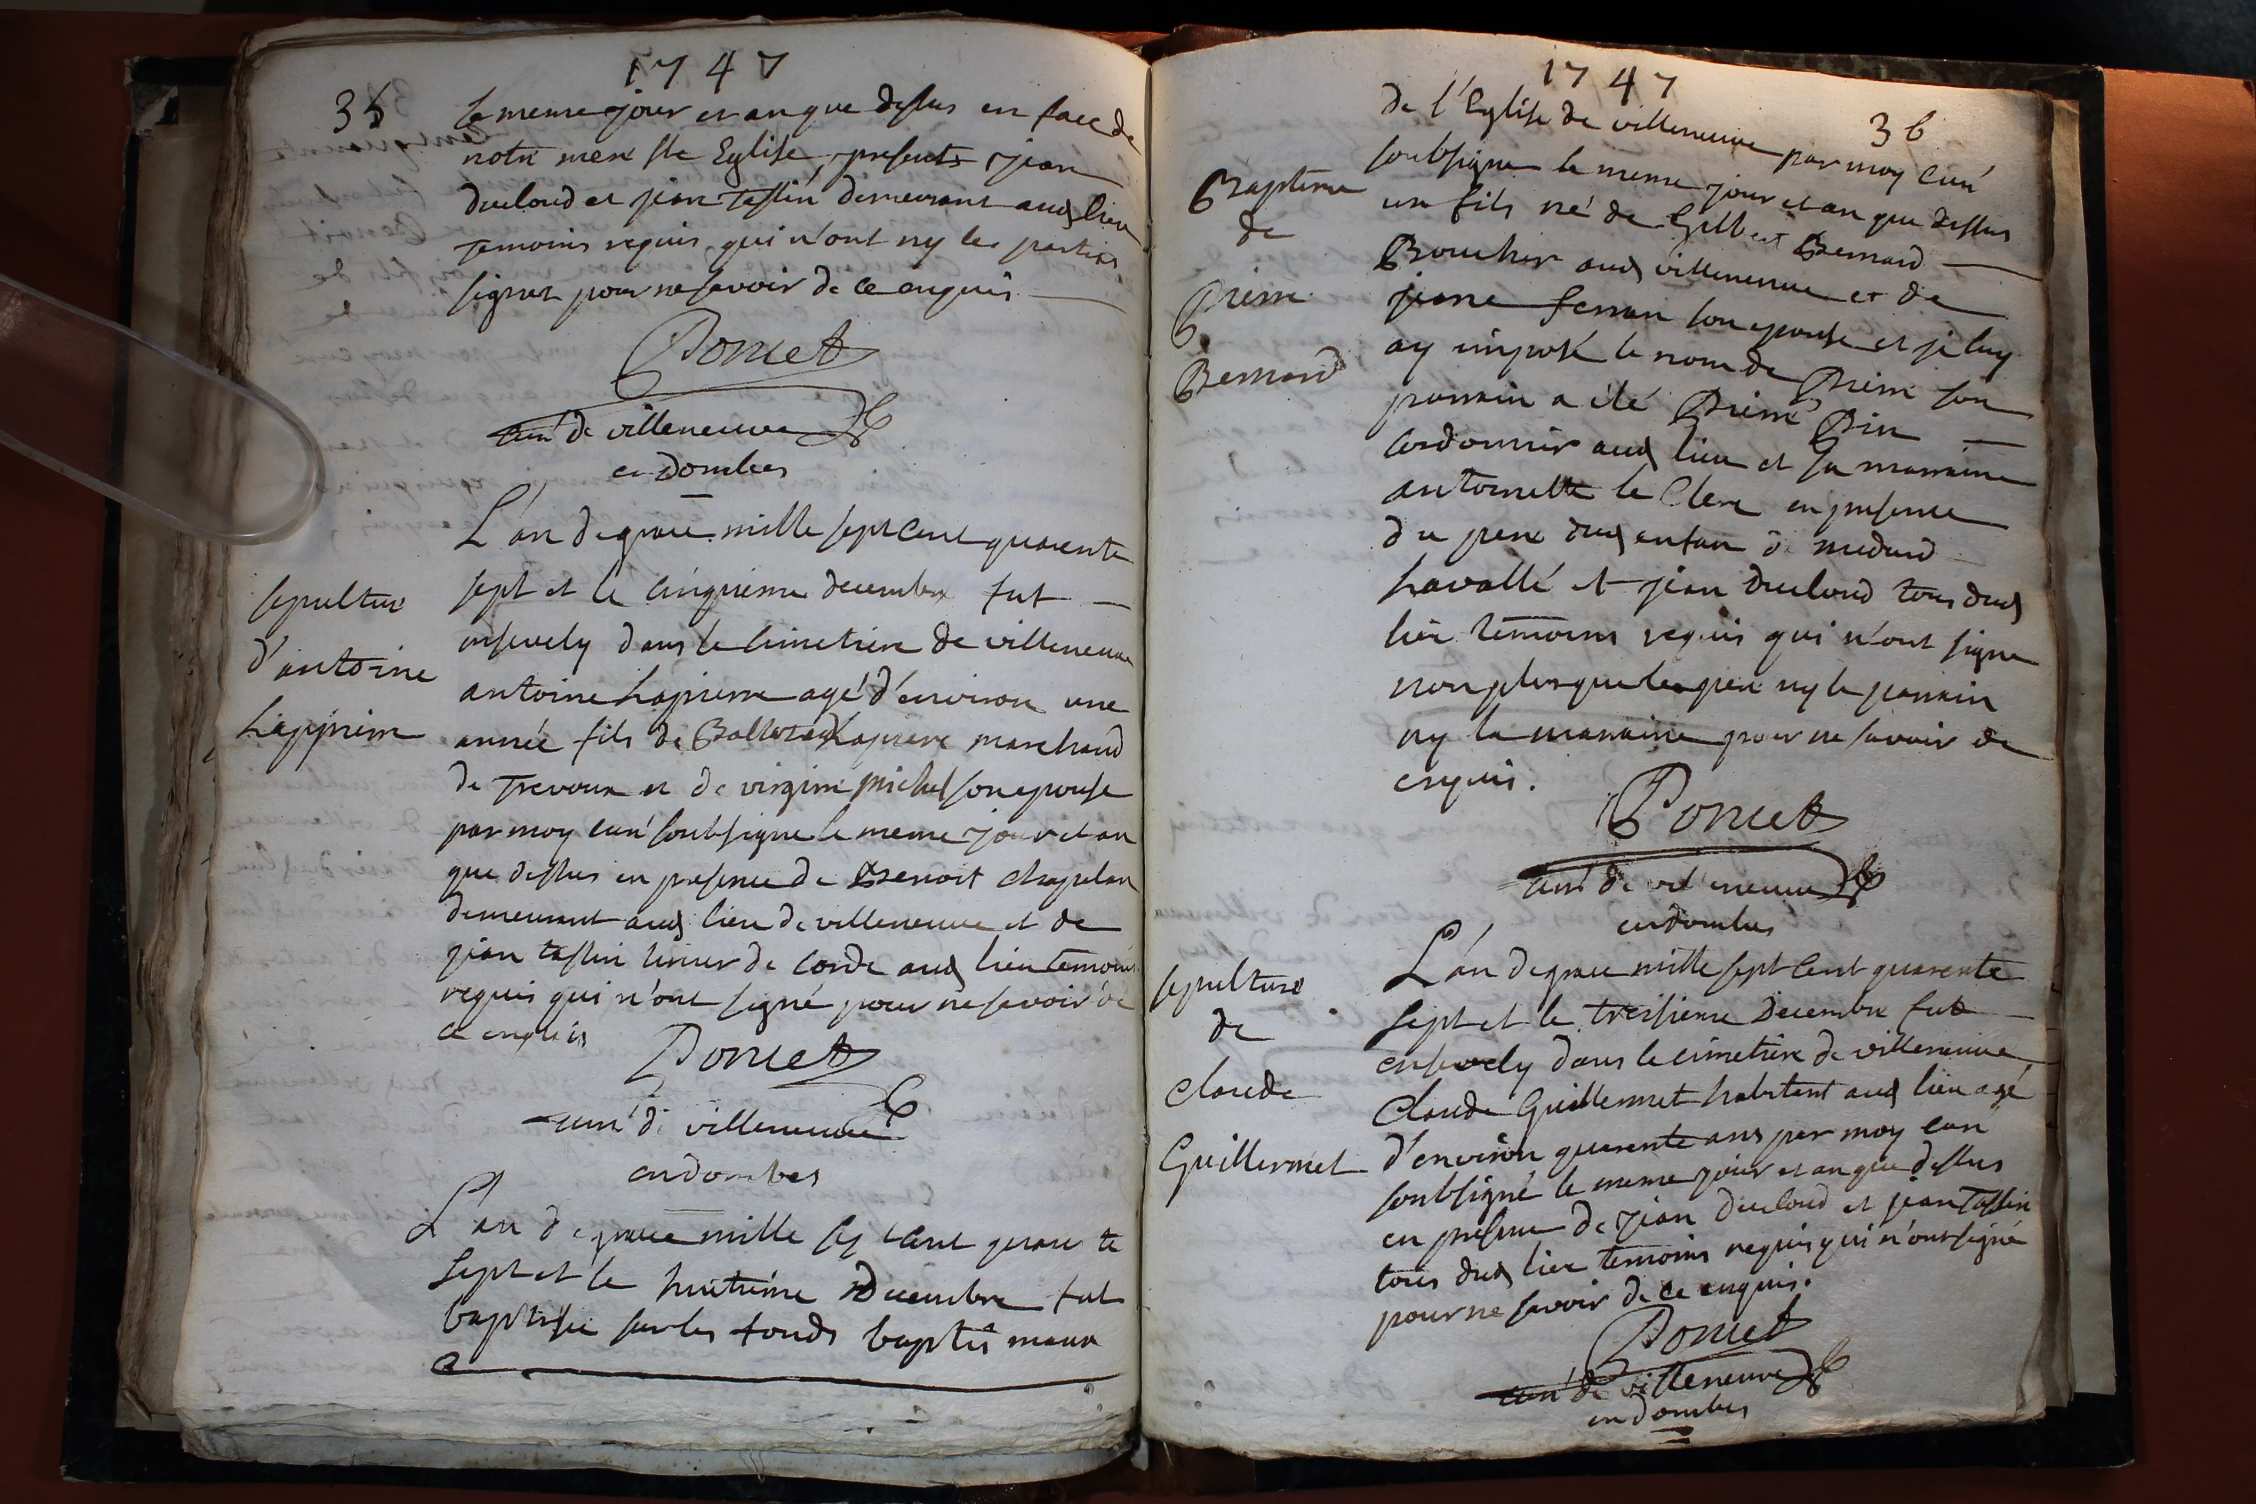 1747
35
le meme jour et an que dessus en face de
notre mere ste Eglise, presents jean
ducloud et jean tassin demeurant aud lieu
temoins requis qui n'ont ny les parties
signer pour ne savoir de ce enquis
Poncet
curé de villeneuve
en dombes
L'an de grace mille sept cent quarente
sept et le cinquieme decembre fut
ensevely dans le cimetiere de villeneuve
antoine Lapierre agé d'environ une
année fils de Baltezard Lapierre marchand
de Trevoux et de virginie michel son epouse
par moy curé soubsigne le meme jour et an
que dessus en presence de Benoit chapelan
demeurant aud lieu de villeneuve et de
jean tassin tireur de corde aud lieu temoins
requis qui n'ont signé pour ne savoir de
ce enquis
sepulture
d'antoine
Lappierre
Poncet
curé de villeneuve
en dombes
L'an de grace mille sept cent quarente
sept et le huitieme Decembre fut
baptisée sur les fonds baptismaux
1747
36
de l'Eglise de villeneuve par moy curé
soubsigne le meme jour et an que dessus
un fils né de Gilbert Bernard
Boucher aud villeneuve et de
jeane ferran son epouse et je luy
ay imposé le nom de Pierre son
parrain a été Pierre Pin
cordonnier aud lieu et sa marraine
antoinette le Clerc en presence
du pere dud enfan de medard
Lavallé et jean ducloud tous dud
lieu temoins requis qui n'ont signe
non plus que le pere ny le parrain
ny la marraine pour ne savoir de
enquis.
Baptême
de
Pierre
Bernard
Poncet
curé de villeneuve
en dombes
L'an de grace mille sept cent quarente
sept et le treisieme Decembre fut
ensevely dans le cimetiere de villeneuve
Claude Guillermet habitant aud lieu agé
d'environ quarente ans par moy curé
soubsigné le meme jour et an que dessus
en presence de jean ducloud et jean tassin
tous dud lieu temoins requis qui n'ont signé
pour ne savoir de ce enquis.
sepulture
de
claude
Guillermet
Poncet
curé de villeneuve
en dombes